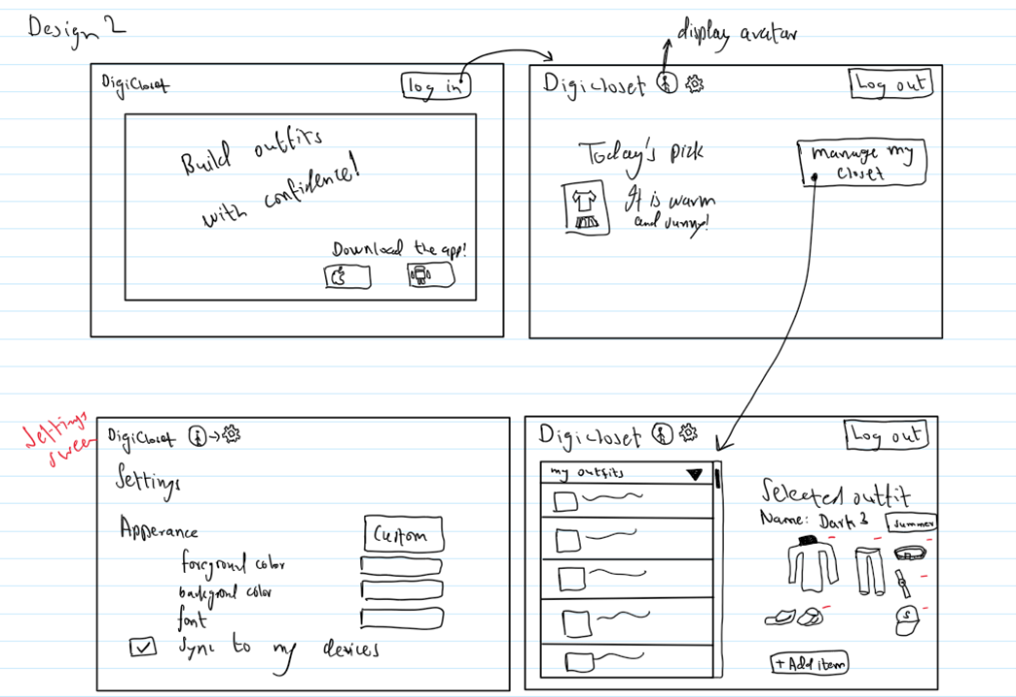 Design 2
display avatar
DigiCloset
log in
Build outfits
with confidence!
Download the app!
Digicloset
Log out
Today's pick
manage my
closet
It is warm
and sunny!
Settings
screen
DigiCloset
Settings
Apperance
Custom
foreground color
background color
font
Sync to my devices
Digicloset
Log out
my outfits
Selected outfit
Name: Dark 3
summer
S
+ Add item